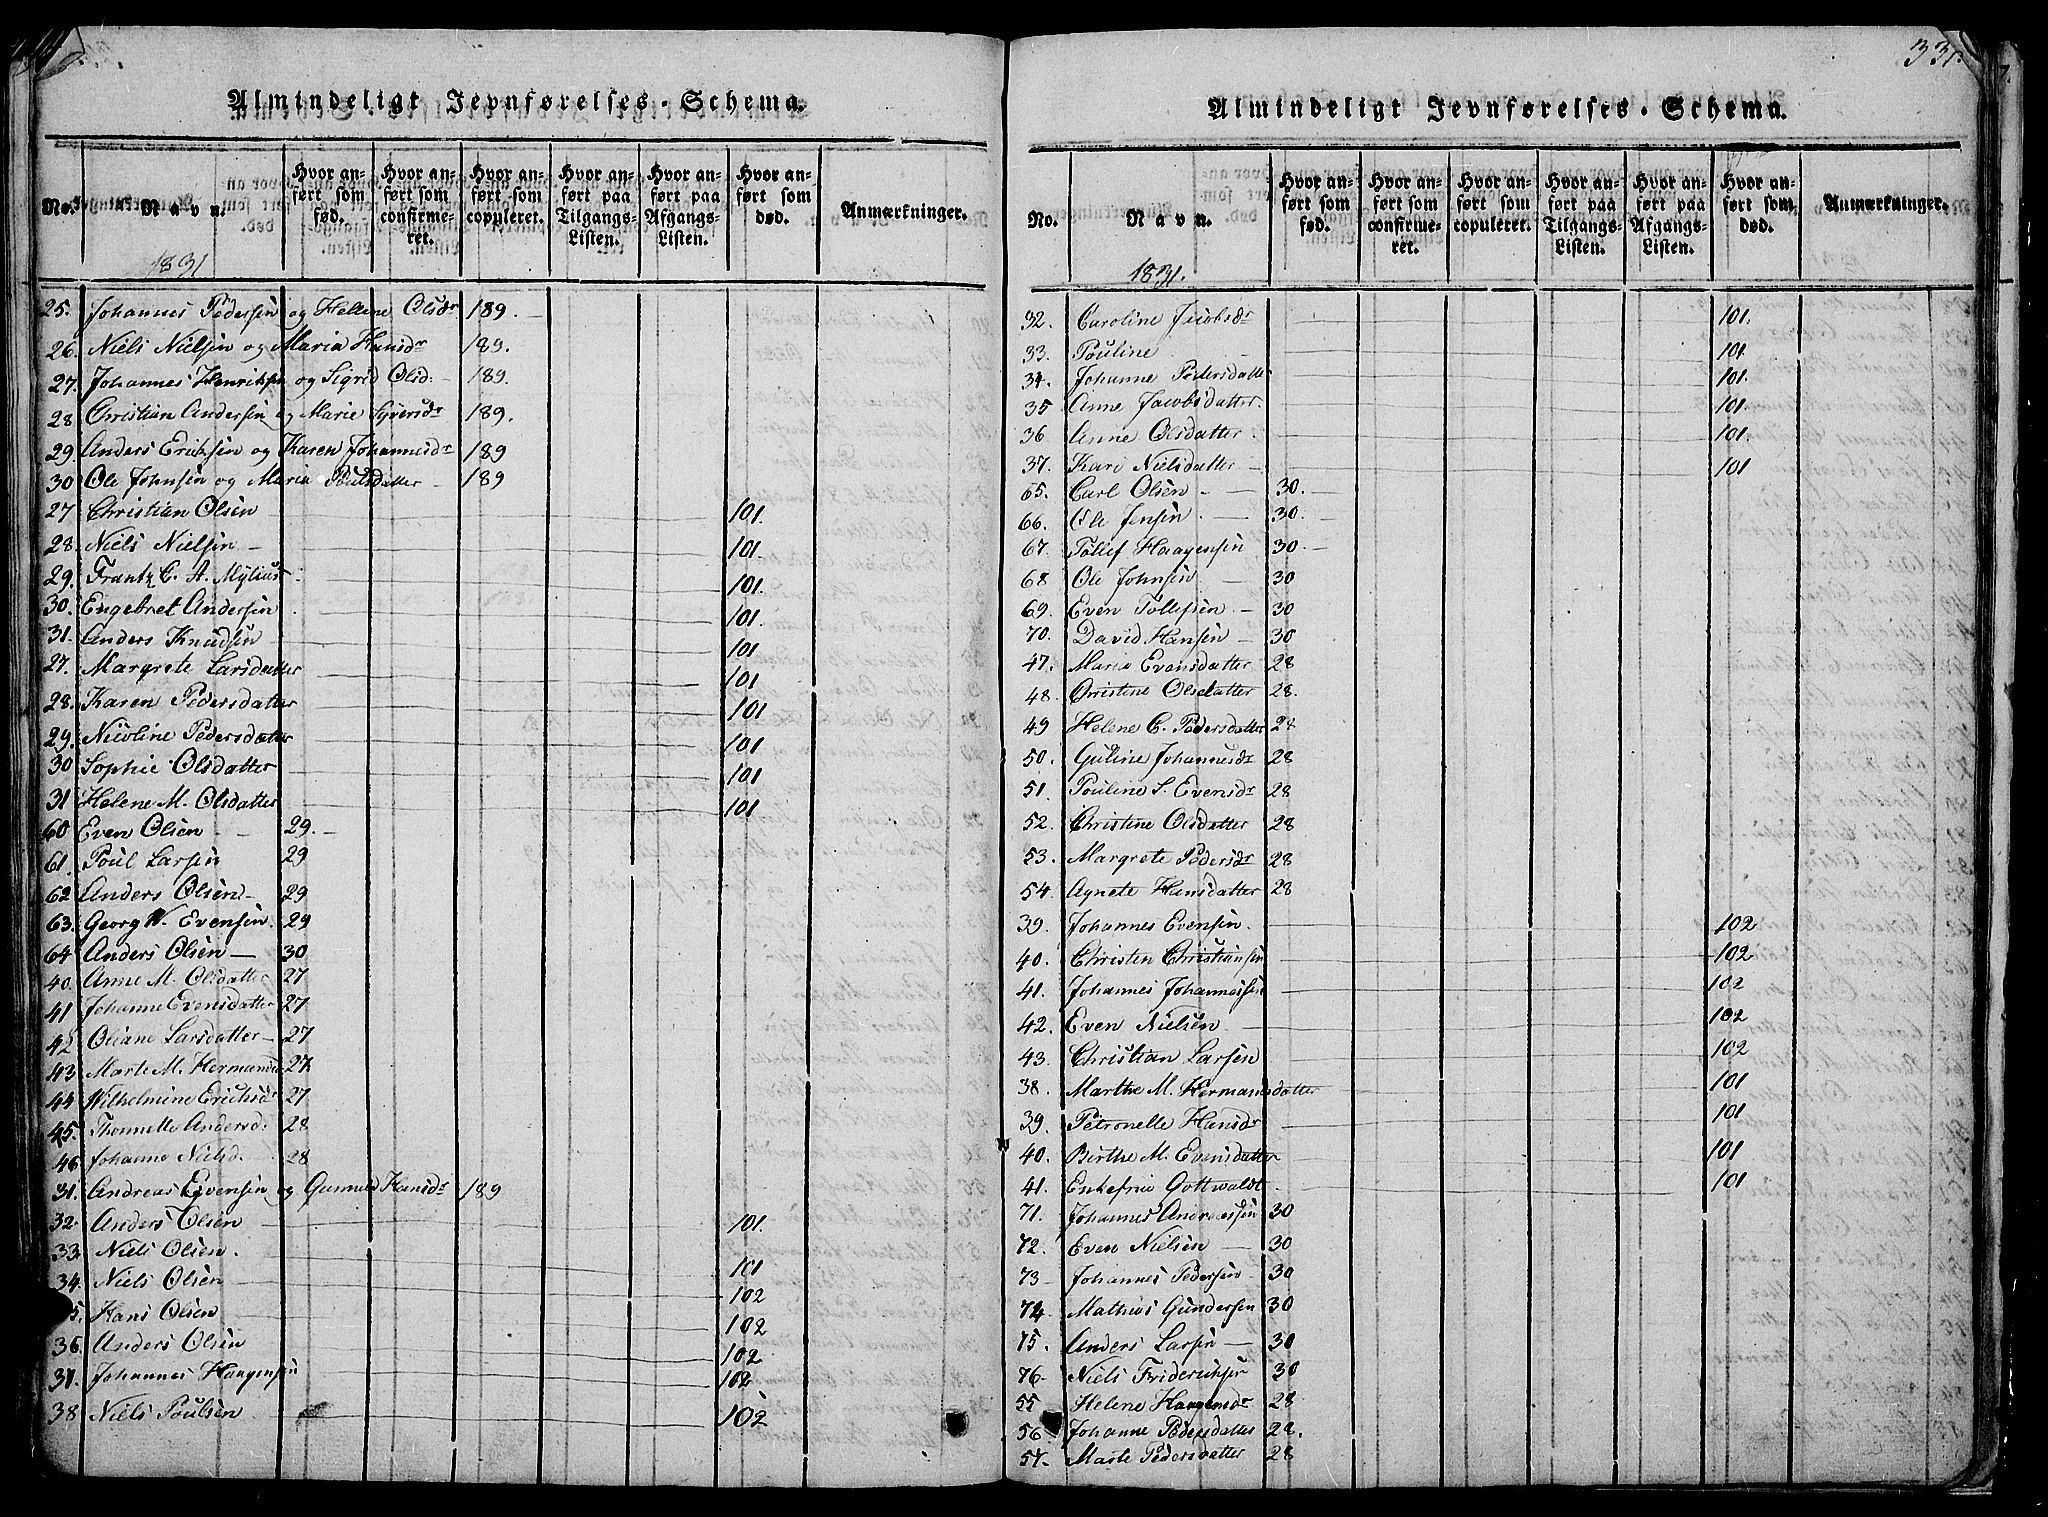 Almindeligt Jevnførelses-Schema.
No. Navn. Hvor anført som fød. Hvor anført som confirmeret. Hvor anført som copuleret. Hvor anført paa Tilgangs-Listen. Hvor anført paa Afgangs-Listen. Hvor anført som død. Anmærkninger.
1831
25. Johannes Pedersen og Hellene Olsdr 189.
26. Niels Nielsen og Maria Hansdr 189.
27. Johannes Henriksen og Sigrid Olsd: 189.
28 Christian Andersen og Marie Syversdr 189.
29. Anders Eriksen og Karen Johannesdr 189
30 Ole Johnsen og Maria Poulsdatter 189
27 Christian Olsen 101.
28. Niels Nielsen 101.
29. Frantz C. A. Mylius 101.
30. Engebret Andersen 101.
31. Anders Knudsen 101
27. Margrete Larsdatter 101
28. Karen Pedersdatter 101
29. Nicoline Pedersdatter 101
30 Sophie Olsdatter 101
31 Helene M. Olsdatter 101
60 Even Olsen 29.
61. Poul Larsen 29
62 Anders Olsen 29
63. Georg W. Evensen. 29
64 Anders Olsen 30
40. Anne M. Olsdatter 27
41 Johanne Evensdatter 27
42 Oliane Larsdatter 27
43 Marte M. Hermansd 27
44 Wilhelmine Erichsdr 27
45. Thonnette Andersd: 28
46. Johanne Nielsd. 28
31. Andreas Evensen og Gunnild Hansdr 189
32. Anders Olsen 101.
33. Niels Olsen. 101
34. Niels Olsen 102
5. Hans Olsen 102
36. Anders Olsen 102
37. Johannes Haagensen 102
38 Niels Poulsen 102
331.
Almindeligt Jevnførelses-Schema.
No. Navn. Hvor anført som fød. Hvor anført som confirmeret. Hvor anført som copuleret. Hvor anført paa Tilgangs-Listen. Hvor anført paa Afgangs-Listen. Hvor anført som død. Anmærkninger.
1831.
32. Caroline Jacobsdr 101.
33. Pouline 101
34. Johanne Pedersdatter 101.
35 Anne Jacobsdatter. 101.
36 Anne Olsdatter. 101.
37. Kari Nielsdatter 101
65. Carl Olsen 30.
66. Ole Jensen 30.
67. Tollef Haagensen 30.
68 Ole Johnsen 30
69. Even Tollefsen 30
70. David Hansen 30
47. Maria Evensdatter 28
48. Christine Olsdatter 28.
49 Helene C. Pedersdatter 28
50. Guline Johannesdr 28
51. Pouline S. Evensdr 28
52. Christine Olsdatter 28
53. Margrete Pedersdr 28
54. Agnete Hansdatter 28
39. Johannes Evensen. 102
40. Christen Christiansen 102
41. Johannes Johannessen 102
42. Even Nielsen 102
43. Christian Larsen 102
38. Marthe M. Hermansdatter 101
39. Petronelle Hansdr 101
40. Birthe M. Evensdatter 101
41. Gottwaldt 101
71. Johannes Andreassen 30
72. Even Nielsen 30
73 Johannes Pedersen 30
74 Mathias Gundersen 30
75. Anders Larsen 30
76. Niels Frideriksen 30
55 Helene Haagensdr 28
56 Johanne Pedersdatter 28.
57. Marte Pedersdatter 28